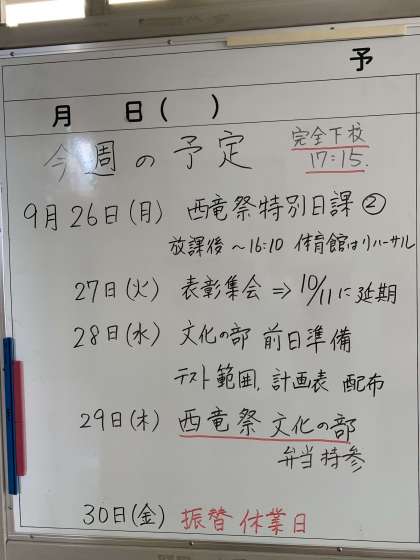 予
月 日( )
今週の予定
完全下校
17:15.
9月26日(月) 西竜祭特別日課②
放課後 ～16:10 体育館はリハーサル
27日(火) 表彰集会 ⇒ 10/11に延期
28日(水) 文化の部 前日準備
テスト範囲、計画表 配布
29日(木) 西竜祭 文化の部
弁当持参
30日(金) 振替休業日